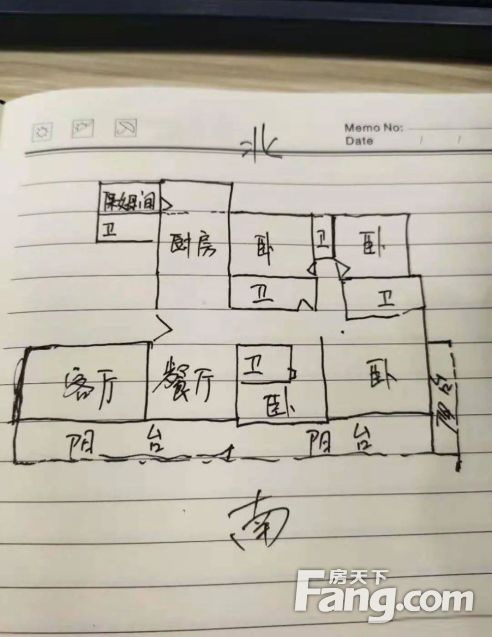 Memo No:
Date / /
北
保姆间
卫
厨房
卧
卫
卧
卫
卫
客厅
餐厅
卫
卧
卧
阳台
阳台
阳台
南
房天下
Fang.com